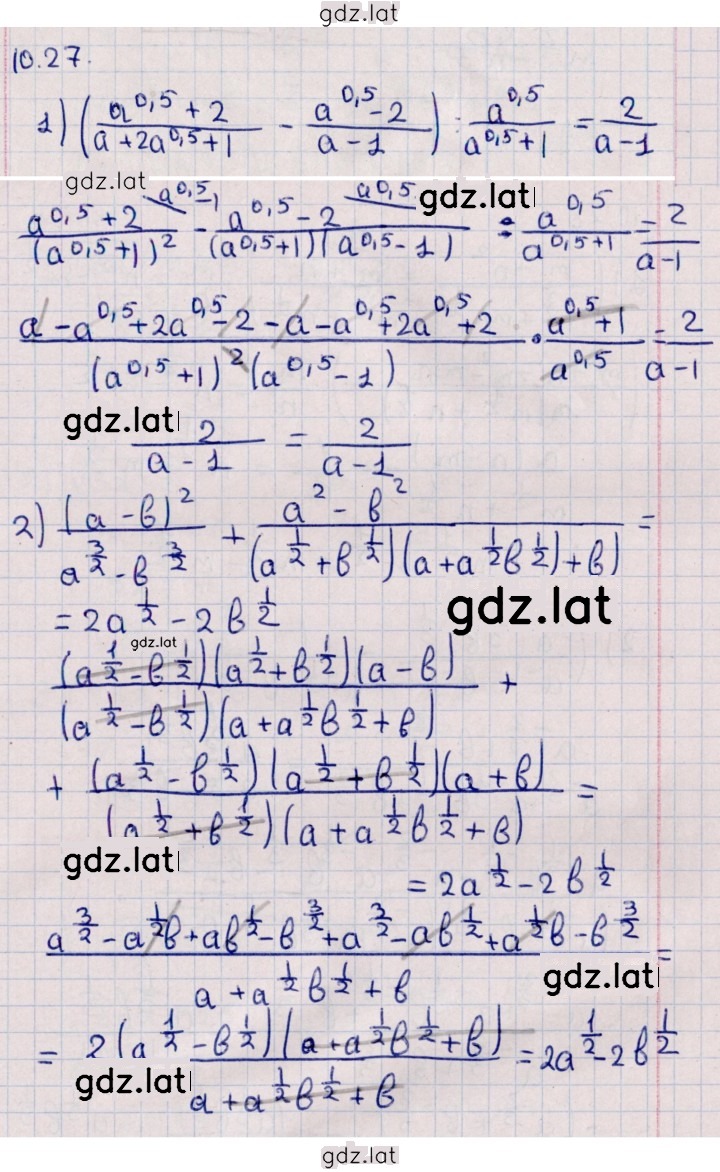 gdz.lat
10.27.
1) ((a^0,5 + 2)/(a + 2a^0,5 + 1) - (a^0,5 - 2)/(a - 1)) : a^0,5/(a^0,5 + 1) = 2/(a - 1)
gdz.lat
a^0,5 - 1 a^0,5 gdz.lat
(a^0,5 + 2)/(a^0,5 + 1)^2 - (a^0,5 - 2)/((a^0,5 + 1)(a^0,5 - 1)) : a^0,5/a^0,5+1 = 2/(a - 1)
(a - a^0,5 + 2a^0,5 - 2 - a - a^0,5 + 2a^0,5 + 2)/((a^0,5 + 1)^2 (a^0,5 - 1)) · (a^0,5 + 1)/a^0,5 = 2/(a - 1)
gdz.lat
2/(a - 1) = 2/(a - 1)
2) (a - b)^2/(a^3/2 - b^3/2) + (a^2 - b^2)/((a^1/2 + b^1/2)(a + a^1/2 b^1/2) + b) =
= 2a^1/2 - 2b^1/2
gdz.lat
gdz.lat
((a^1/2 - b^1/2)(a^1/2 + b^1/2)(a - b))/((a^1/2 - b^1/2)(a + a^1/2 b^1/2 + b)) +
+ ((a^1/2 - b^1/2)(a^1/2 + b^1/2)(a + b))/((a^1/2 + b^1/2)(a + a^1/2 b^1/2 + b)) =
gdz.lat
= 2a^1/2 - 2b^1/2
(a^3/2 - a^1/2 b + ab^1/2 - b^3/2 + a^3/2 - ab^1/2 + a^1/2 b - b^3/2)/(a + a^1/2 b^1/2 + b) =
gdz.lat
= (2(a^1/2 - b^1/2)(a + a^1/2 b^1/2 + b))/(a + a^1/2 b^1/2 + b) = 2a^1/2 - 2b^1/2
gdz.lat
gdz.lat